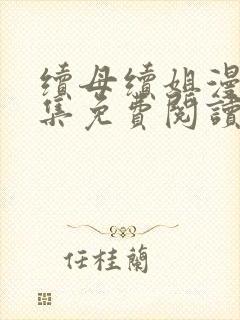 續母續姐漫
集免費閱讀
任桂蘭